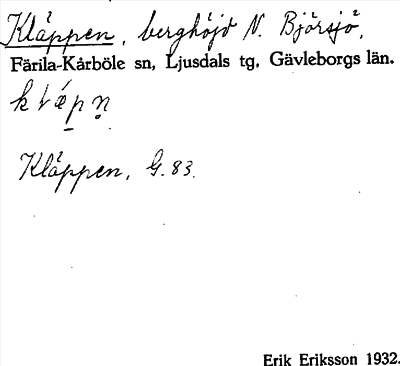 Kläppen, berghöjd N. Björsjö,
Färila-Kårböle sn, Ljusdals tg, Gävleborgs län.
Kläppen, G. 83.
Erik Eriksson 1932.